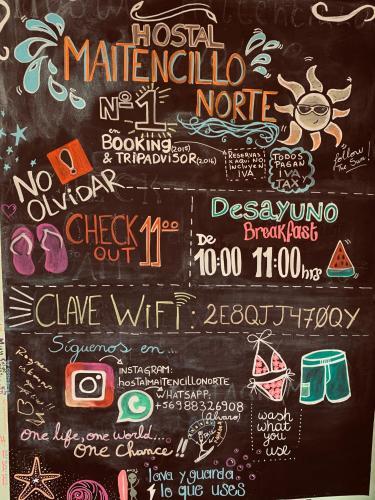 HOSTAL
MAITENCILLO
NORTE
Nº1
en
BOOKING (2015)
& TRIPADVISOR (2016)
RESERVAS
X AQUI NO
INCLUYEN
IVA
TODOS
PAGAN
IVA
TAX
follow
The Sun!
NO
OLVIDAR
CHECK 11:00
OUT
DESAYUNO
Breakfast
De
10:00 11:00 hrs
CLAVE WiFi: 2E8QJJ470QY
Siguenos en...
INSTAGRAM:
hostalmaitencillonorte
WHATSAPP:
+56988326908
(Alvaro)
one life, one world...
one chance!!
wash
what
you
use
lava y guarda
lo que uses